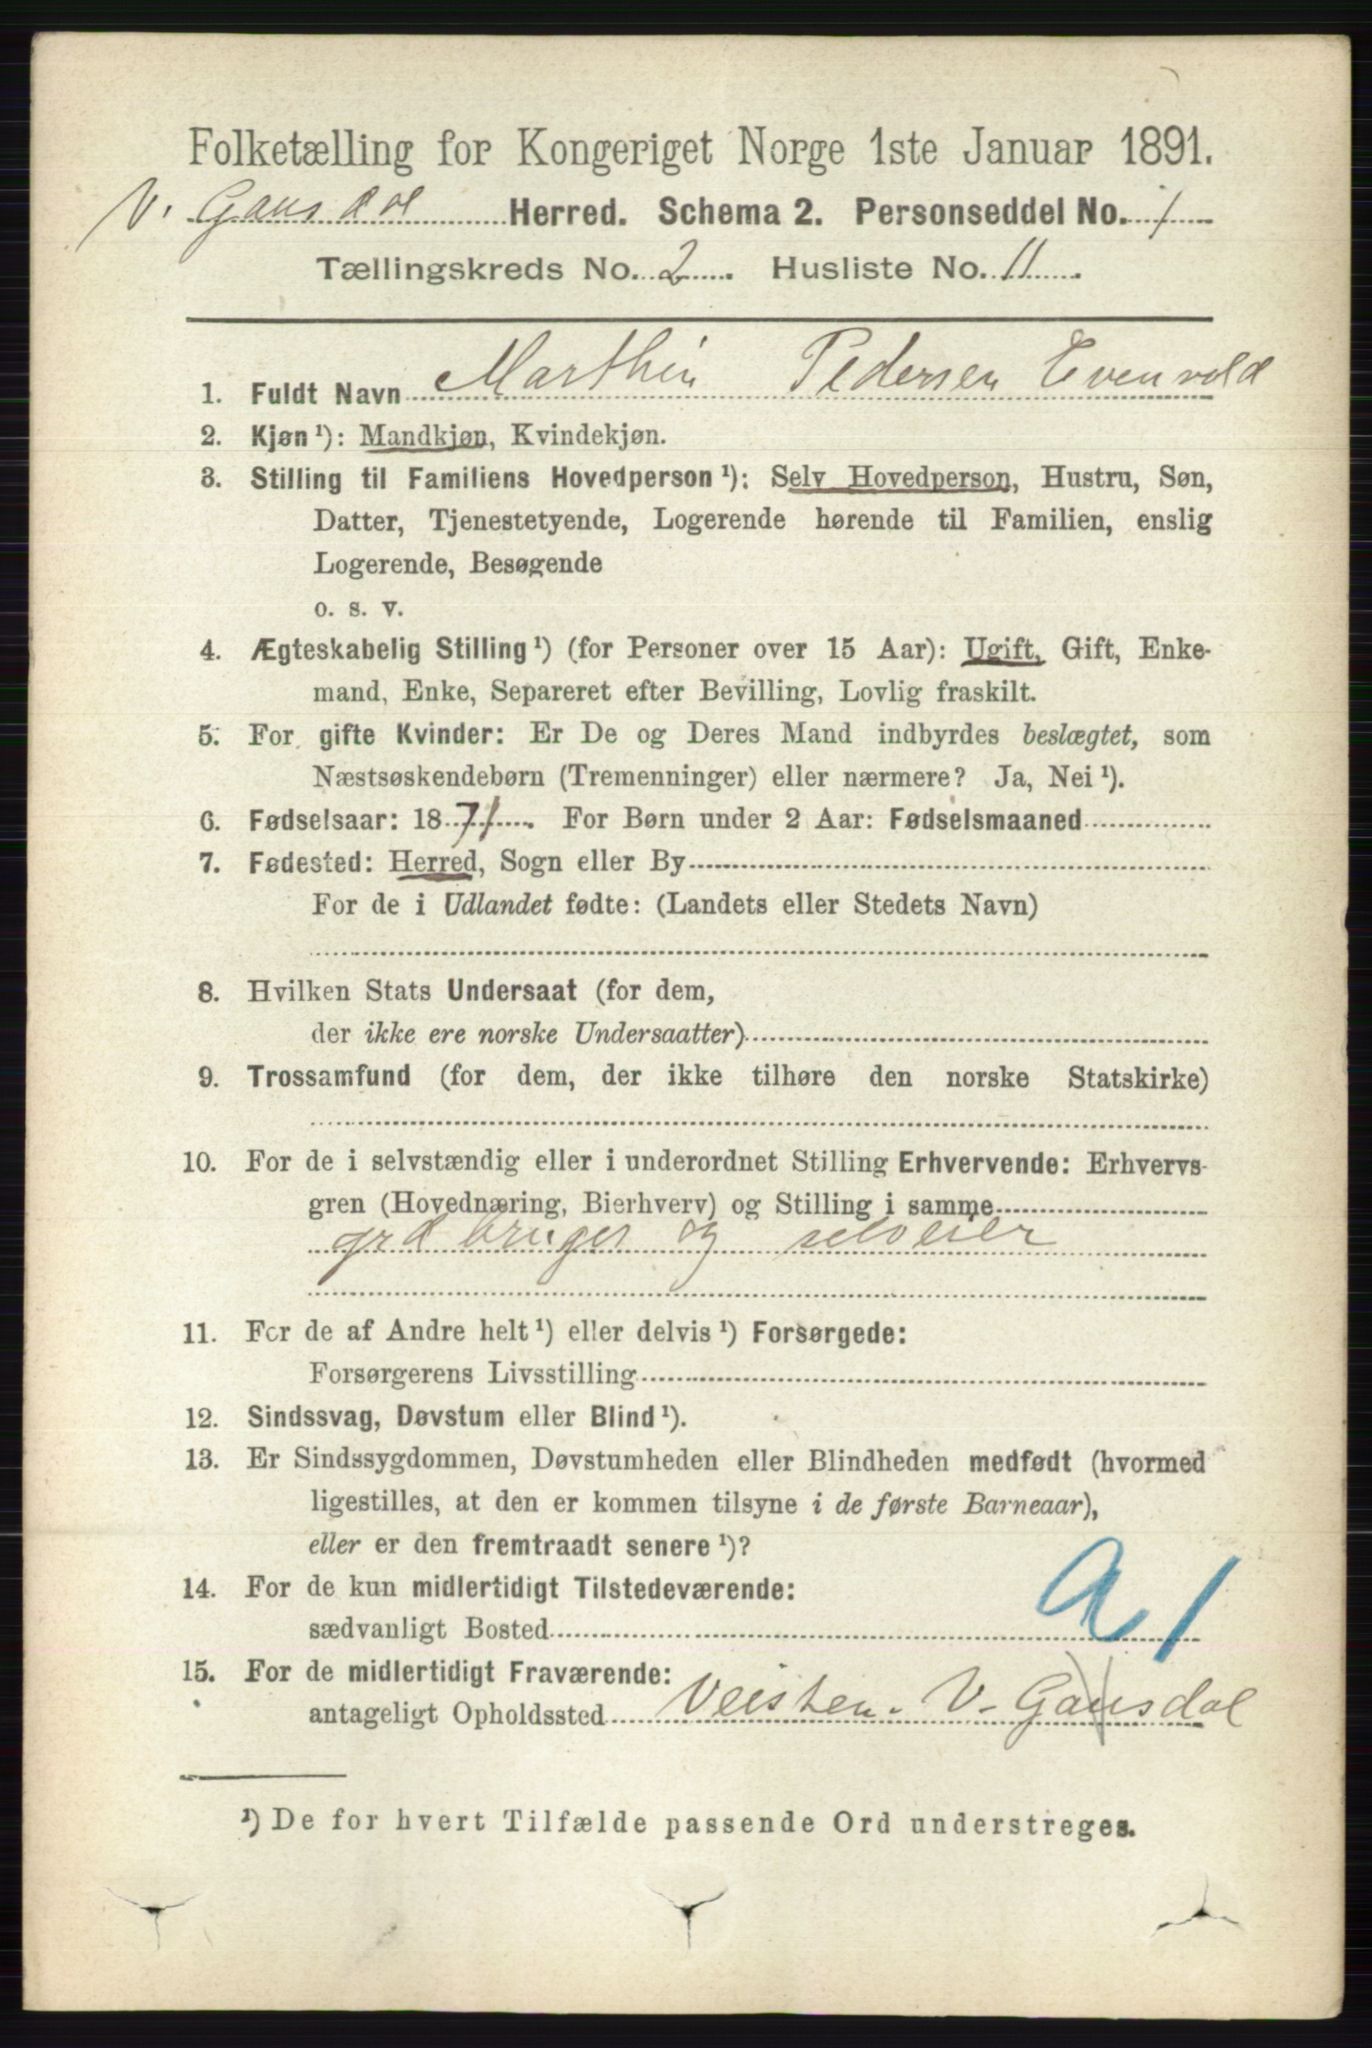 Folketælling for Kongeriget Norge 1ste Januar 1891.
V. Gausdal Herred. Schema 2. Personseddel No. 1
Tællingskreds No. 2. Husliste No. 11.
1. Fuldt Navn Marthin Pedersen Evenvold
2. Kjøn¹): Mandkjøn, Kvindekjøn.
3. Stilling til Familiens Hovedperson¹): Selv Hovedperson, Hustru, Søn,
Datter, Tjenestetyende, Logerende hørende til Familien, enslig
Logerende, Besøgende
o. s. v.
4. Ægteskabelig Stilling¹) (for Personer over 15 Aar): Ugift, Gift, Enke-
mand, Enke, Separeret efter Bevilling, Lovlig fraskilt.
5. For gifte Kvinder: Er De og Deres Mand indbyrdes beslægtet, som
Næstsøskendebørn (Tremenninger) eller nærmere? Ja, Nei¹).
6. Fødselsaar: 1871. For Børn under 2 Aar: Fødselsmaaned
7. Fødested: Herred, Sogn eller By
For de i Udlandet fødte: (Landets eller Stedets Navn)
8. Hvilken Stats Undersaat (for dem,
der ikke ere norske Undersaatter)
9. Trossamfund (for dem, der ikke tilhøre den norske Statskirke)
10. For de i selvstændig eller i underordnet Stilling Erhvervende: Erhvervs-
gren (Hovednæring, Bierhverv) og Stilling i samme
grd bruger og selveier
11. For de af Andre helt¹) eller delvis¹) Forsørgede:
Forsørgerens Livsstilling
12. Sindssvag, Døvstum eller Blind¹).
13. Er Sindssygdommen, Døvstumheden eller Blindheden medfødt (hvormed
ligestilles, at den er kommen tilsyne i de første Barneaar),
eller er den fremtraadt senere¹)?
14. For de kun midlertidigt Tilstedeværende:
sædvanligt Bosted
a 1
15. For de midlertidigt Fraværende:
antageligt Opholdssted Veisten. V. Gausdal
¹) De for hvert Tilfælde passende Ord understreges.